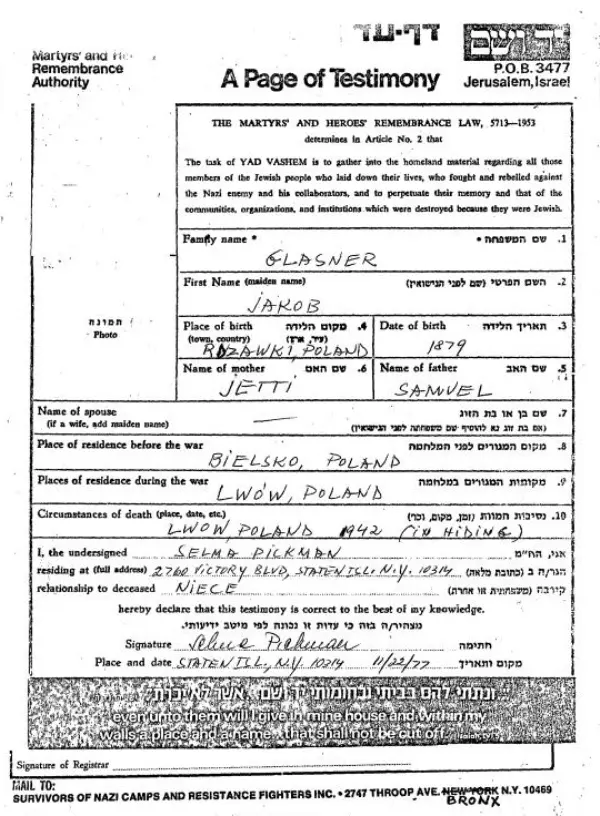 דף-עד
Martyrs' and
Remembrance
Authority
A Page of Testimony
יד ושם
P.O.B. 3477
Jerusalem, Israel
THE MARTYRS' AND HEROES' REMEMBRANCE LAW, 5713—1953
determines in Article No. 2 that
The task of YAD VASHEM is to gather into the homeland material regarding all those
members of the Jewish people who laid down their lives, who fought and rebelled against
the Nazi enemy and his collaborators, and to perpetuate their memory and that of the
communities, organizations, and institutions which were destroyed because they were Jewish.
Family name * 1. שם המשפחה *
GLASNER
First Name (maiden name) 2. השם הפרטי (שם לפני הנישואין)
JAKOB
תמונה
Photo
Place of birth 4. מקום הלידה
(town, country) (עיר, ארץ)
ROZAWKI, POLAND
Date of birth 3. תאריך הלידה
1879
Name of mother 6. שם האם
JETTI
Name of father 5. שם האב
SAMUEL
Name of spouse 7. שם בן או בת הזוג
(if a wife, add maiden name) (אם בת זוג נא להוסיף שם משפחתה לפני הנישואין)
Place of residence before the war 8. מקום המגורים לפני המלחמה
BIELSKO, POLAND
Places of residence during the war 9. מקומות המגורים במלחמה
LWÓW, POLAND
Circumstances of death (place, date, etc.) 10. נסיבות המוות (זמן, מקום, וכו')
LWOW, POLAND 1942 (IN HIDING)
I, the undersigned SELMA PICKMAN אני, הח"מ
residing at (full address) 2760 VICTORY BLVD, STATEN ISL. N.Y. 10314 הגר/ה ב (כתובת מלאה)
relationship to deceased NIECE קירבה (משפחתית או אחרת)
hereby declare that this testimony is correct to the best of my knowledge.
מצהיר/ה בזה כי עדות זו נכונה לפי מיטב ידיעותי.
Signature Selma Pickman חתימה
Place and date STATEN ISL., N.Y. 10314 11/22/77 מקום ותאריך
"...ונתתי להם בביתי ובחומותי יד ושם... אשר לא יכרת"
...even unto them will I give in mine house and within my
walls a place and a name... that shall not be cut off.
Signature of Registrar
MAIL TO:
SURVIVORS OF NAZI CAMPS AND RESISTANCE FIGHTERS INC. • 2747 THROOP AVE. NEW YORK N.Y. 10469
BRONX